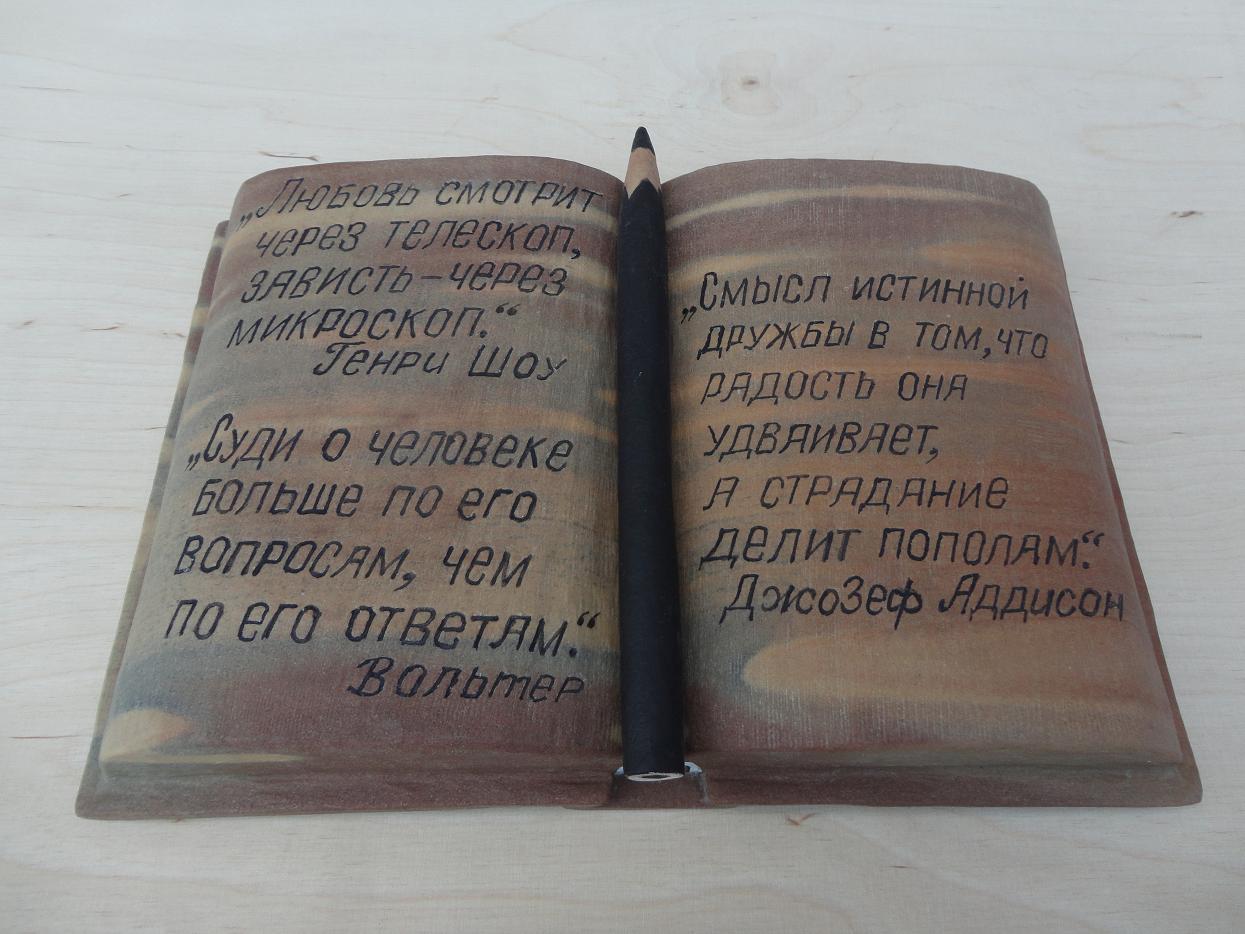 „Любовь смотрит
через телескоп,
зависть – через
микроскоп.“
Генри Шоу
„Суди о человеке
больше по его
вопросам, чем
по его ответам.“
Вольтер
„Смысл истинной
дружбы в том, что
радость она
удваивает,
а страдание
делит пополам.“
Джозеф Аддисон